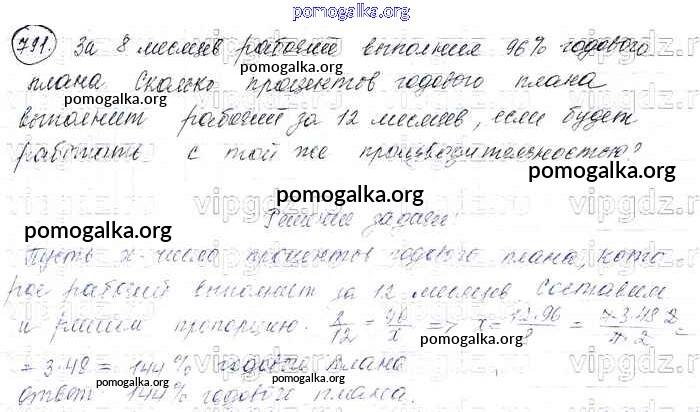 pomogalka.org
791. За 8 месяцев рабочий выполнил 96% годового
плана. Сколько процентов годового плана
выполнит рабочий за 12 месяцев, если будет
работать с той же производительностью?
Решение задачи:
Пусть x - число процентов годового плана, кото-
рое рабочий выполнит за 12 месяцев. Составим
и решим пропорцию. 8/12 = 96/x => x = 12·96/8 =
= 3·48 = 144% годового плана
ответ 144% годового плана.
pomogalka.org
pomogalka.org
pomogalka.org
pomogalka.org
pomogalka.org
pomogalka.org
pomogalka.org
pomogalka.org
vipgdz.ru